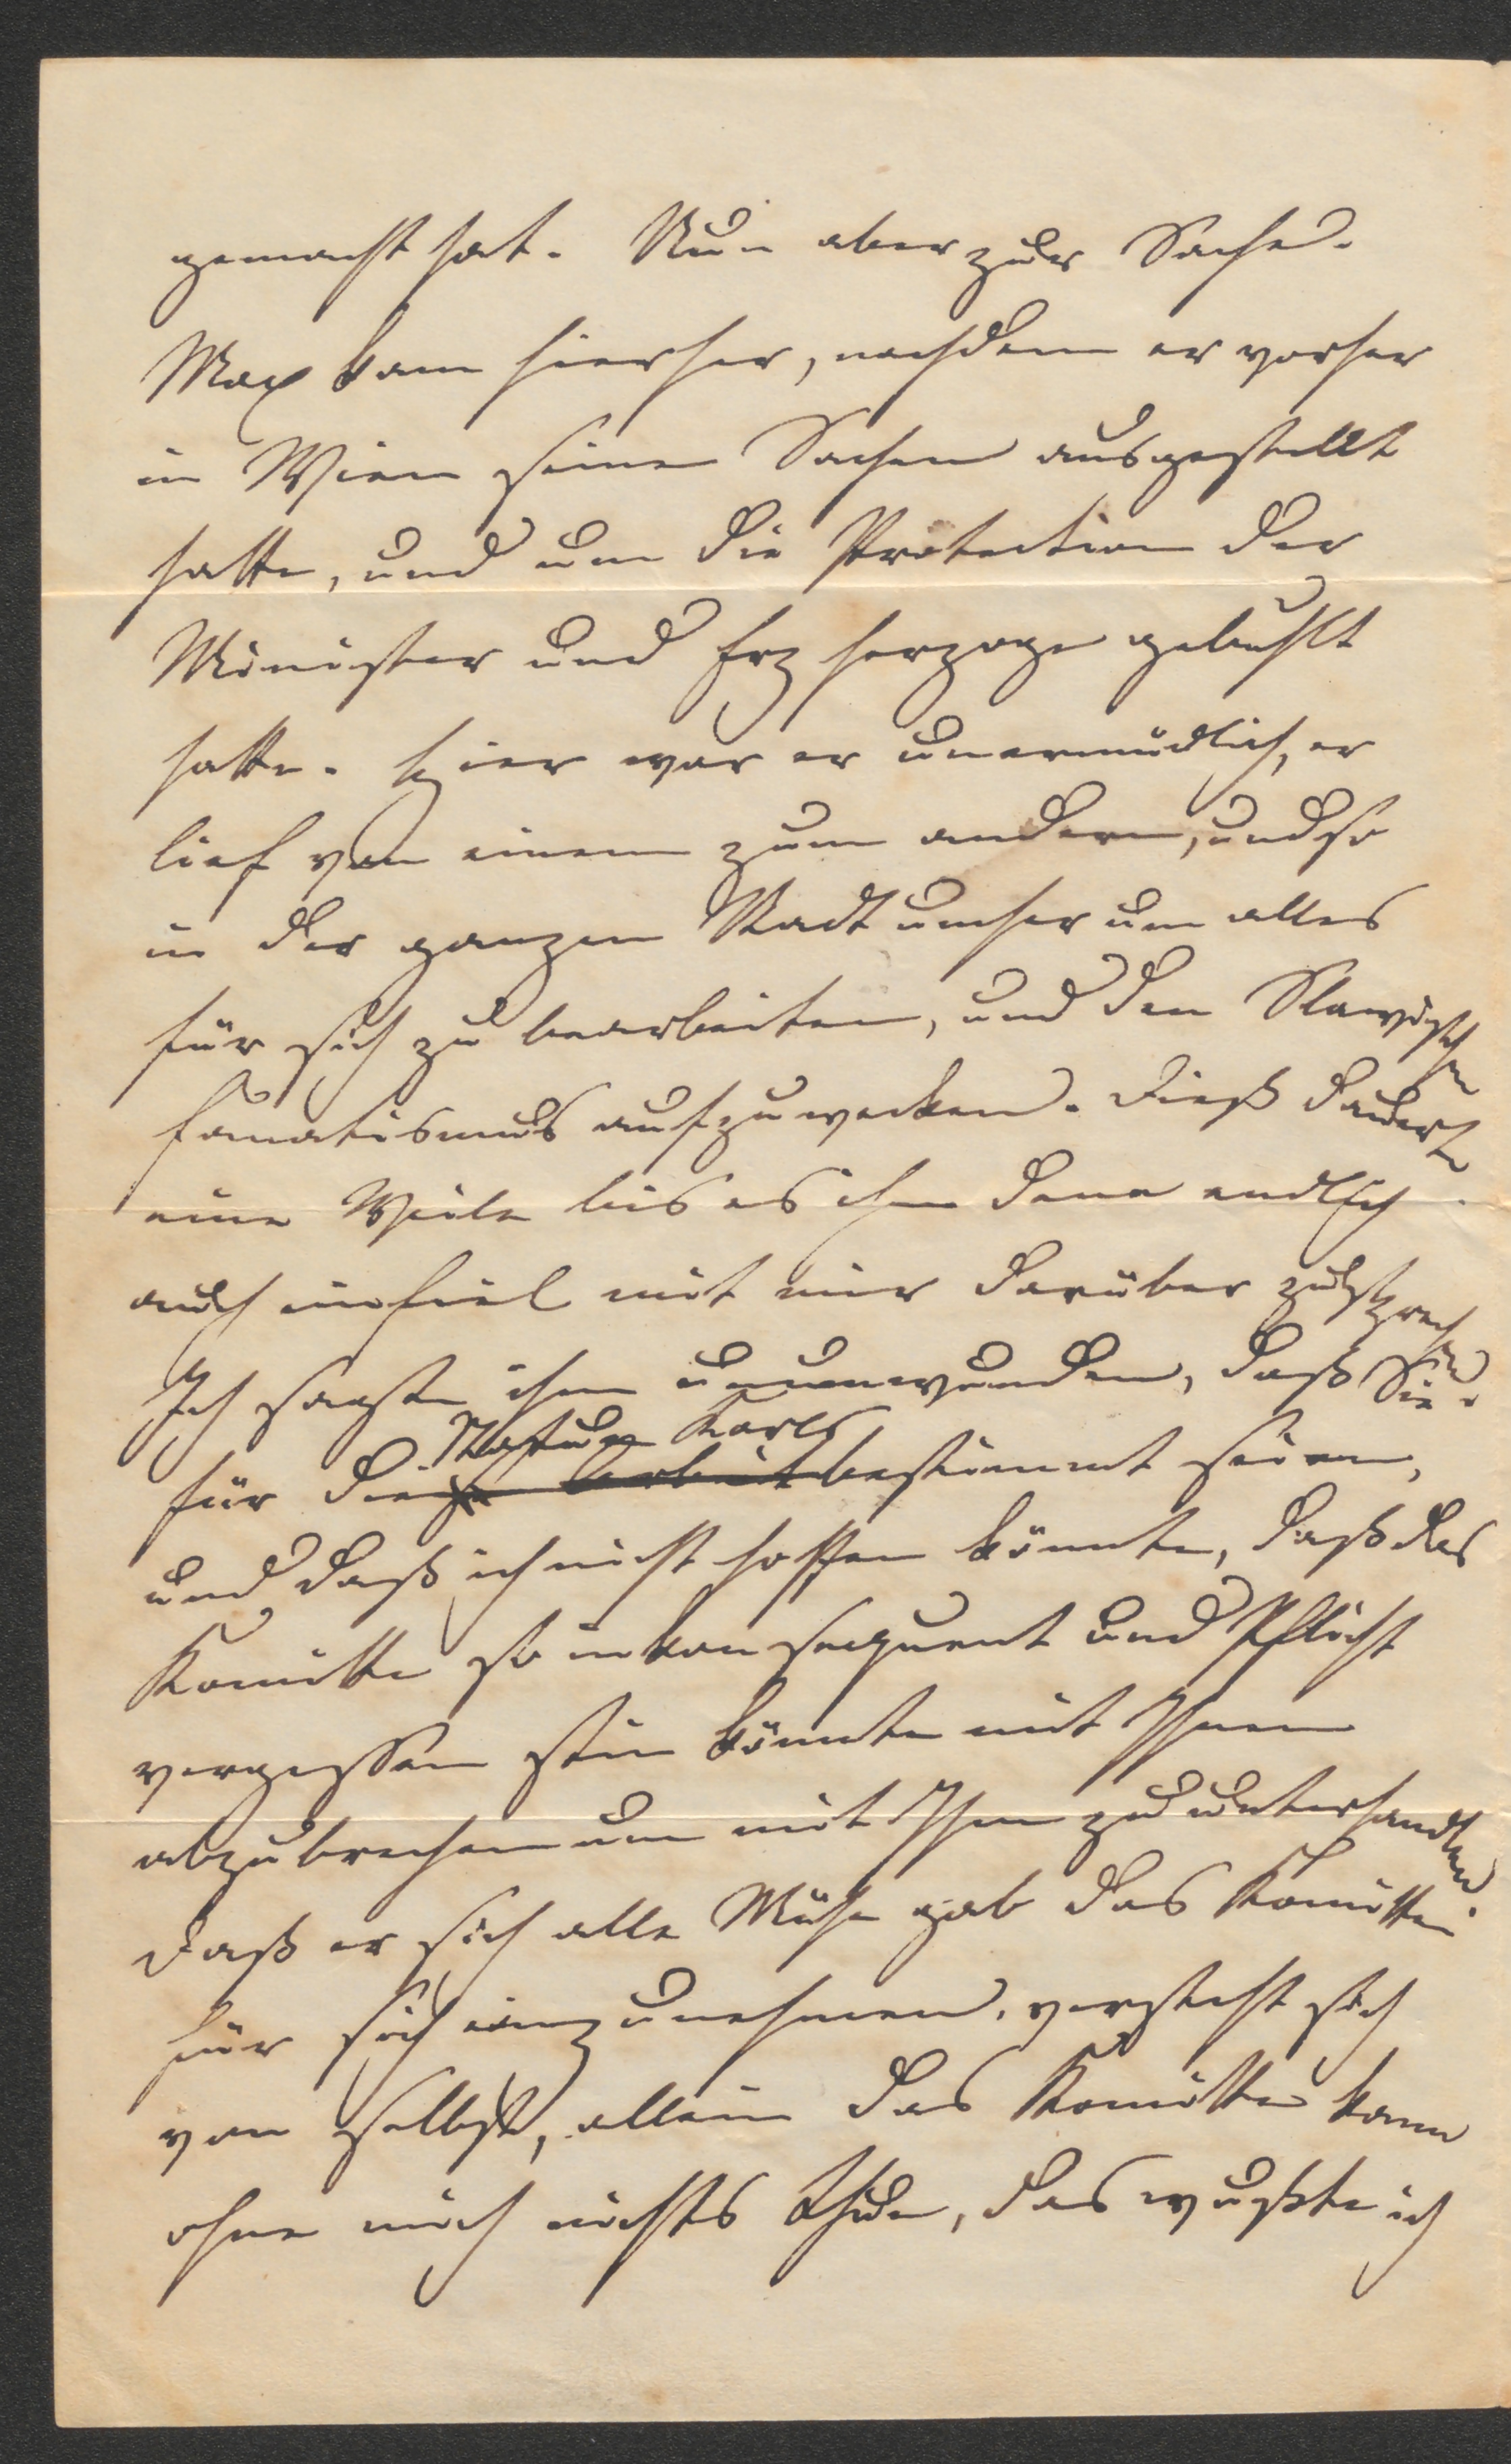 gemacht hat. Nun aber zur Sache.
Max kam hierher, nachdem er vorher
in Wien seine Sachen ausgestellt
hatte, und um die Protection der
Minister und Erzherzoge gebuhlt
hatte. Hier war er unermüdlich, er
lief von einem zum andern, und so
in der ganzen Stadt umher um alles
für sich zu bearbeiten, und den Slawischen
Fanatismus aufzuwecken. Dieß dauerte
eine Weile bis es ihm dann endlich
auch einfiel mit mir darüber zu sprechen.
Ich sagte ihm unumwunden, daß Sie
Statue Karls
für diese Arbeit bestimmt seien,
und daß ich nicht hoffen könnte, daß das
Komitte so inkonsequent und Pflicht
vergessen sein könnte mit Ihnen
abzubrechen um mit Ihm zu unterhandlen
daß er sich alle Mühe gab das Komitte
für sich einzunehmen, versteht sich
von selbst, allein das Komitte kann
ohne mich nichts thun, das wußte ich